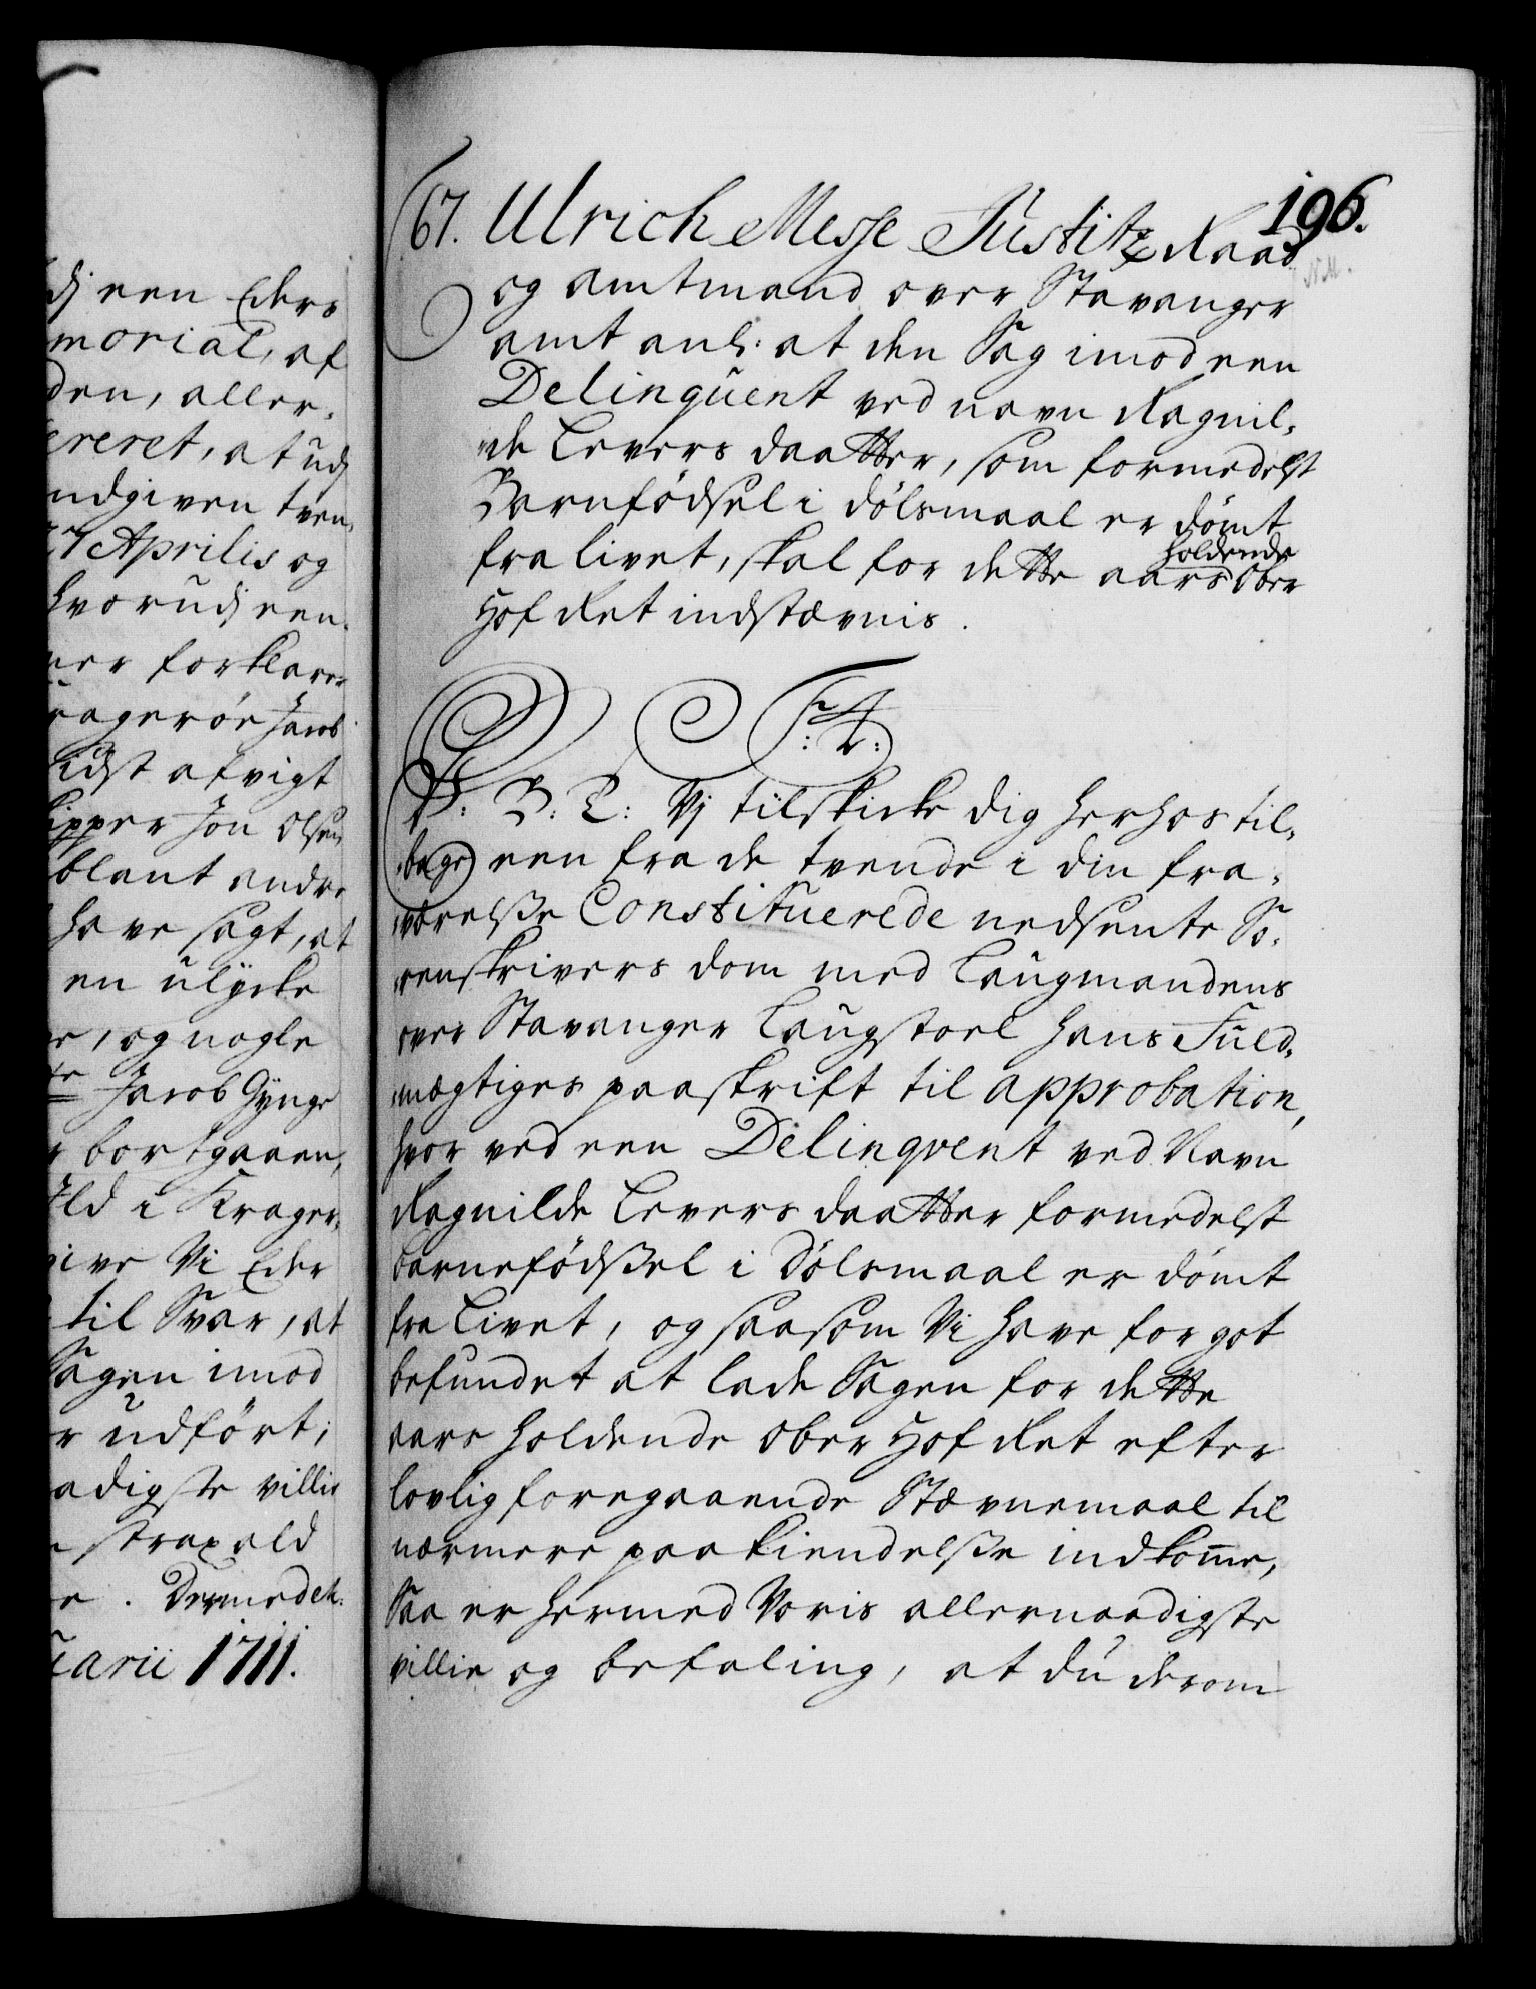 dj een Eders
morial, af
den, aller-
fereret, at udj
udgiven tven-
27 Aprilis og
hvorudj een
ner forklare
ragerøe Jacob
sidst afvigt
kipper Jon Olsen
blant andre
have sagt, at
en ulycke
e, og nogle
te Jacob Gynge
r bortgaaen,
Old i Krager-
give Vi Eder
til Svar, at
Sagen imod
r udført;
aadigste villie
n strax ald
e. Dermed etc:
uarii 1711.
196.
N.M.
67. Ulrich Messe Justitz Raad
og Amtmand over Stavanger
amt anl: at den Sag imod een
Delinquent ved navn Ragnil-
de Levers daatter, som formedelst
Barnfødsel i dølsmaal er dømt
fra livet, skal for dette aars holdende Ober
Hof Ret indstævnis.
F: 4:
V: B: T: Vj tilskicke dig herhos til-
bage een fra de tvende i din fra-
værelsse Constituerede nedsente So-
renskrivers dom med Laugmandens
over Stavanger Laugstoel hans Fuld-
mægtiges paaskrift til approbation,
hvor ved een Delinqvent ved Navn
Ragnilde Levers daatter formedelst
barnefødssel i Dølsmaal er dømt
fra Livet, og saasom Vi have for got
befundet at lade Sagen for dette
aars holdende Ober Hof Ret efter
lovlig foregaaende Stævnemaal til
nærmere paakiendelsse indkom̄e,
Saa er hermed Voris allernaadigste
villie og befaling, at du derom